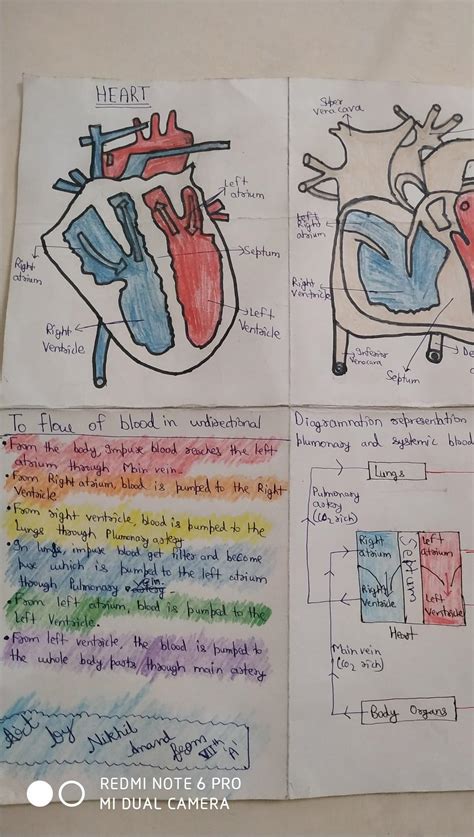 HEART
Left
atrium
Septum
Right
atrium
Right
Ventricle
Left
Ventricle
Super
vena cava
Right
atrium
Right
Ventricle
Inferior
Venacava
Septum
De
To flow of blood in undirectional
• From the body, Impure blood reaches the left
atrium through Main vein.
• From Right atrium, blood is pumped to the Right
Ventricle
• From right ventricle, blood is pumped to the
Lungs through Plumonary artery
• In lungs, impure blood get filter and become
pure which is pumped to the left atrium
through Pulmonary Vein.
• From left atrium, blood is pumped to the
Left Ventricle.
• From left ventricle, the blood is pumped to
the whole body parts through main artery
Act by Nikhil Anand from VIIth A
Diagrammation representation
plumonary and systemic blood
Lungs
Pulmonary
artery
(CO2 rich)
Right
atrium
Septum
Left
atrium
Right
Ventricle
Left
Ventricle
Heart
Main vein
(CO2 rich)
Body Organs
REDMI NOTE 6 PRO
MI DUAL CAMERA